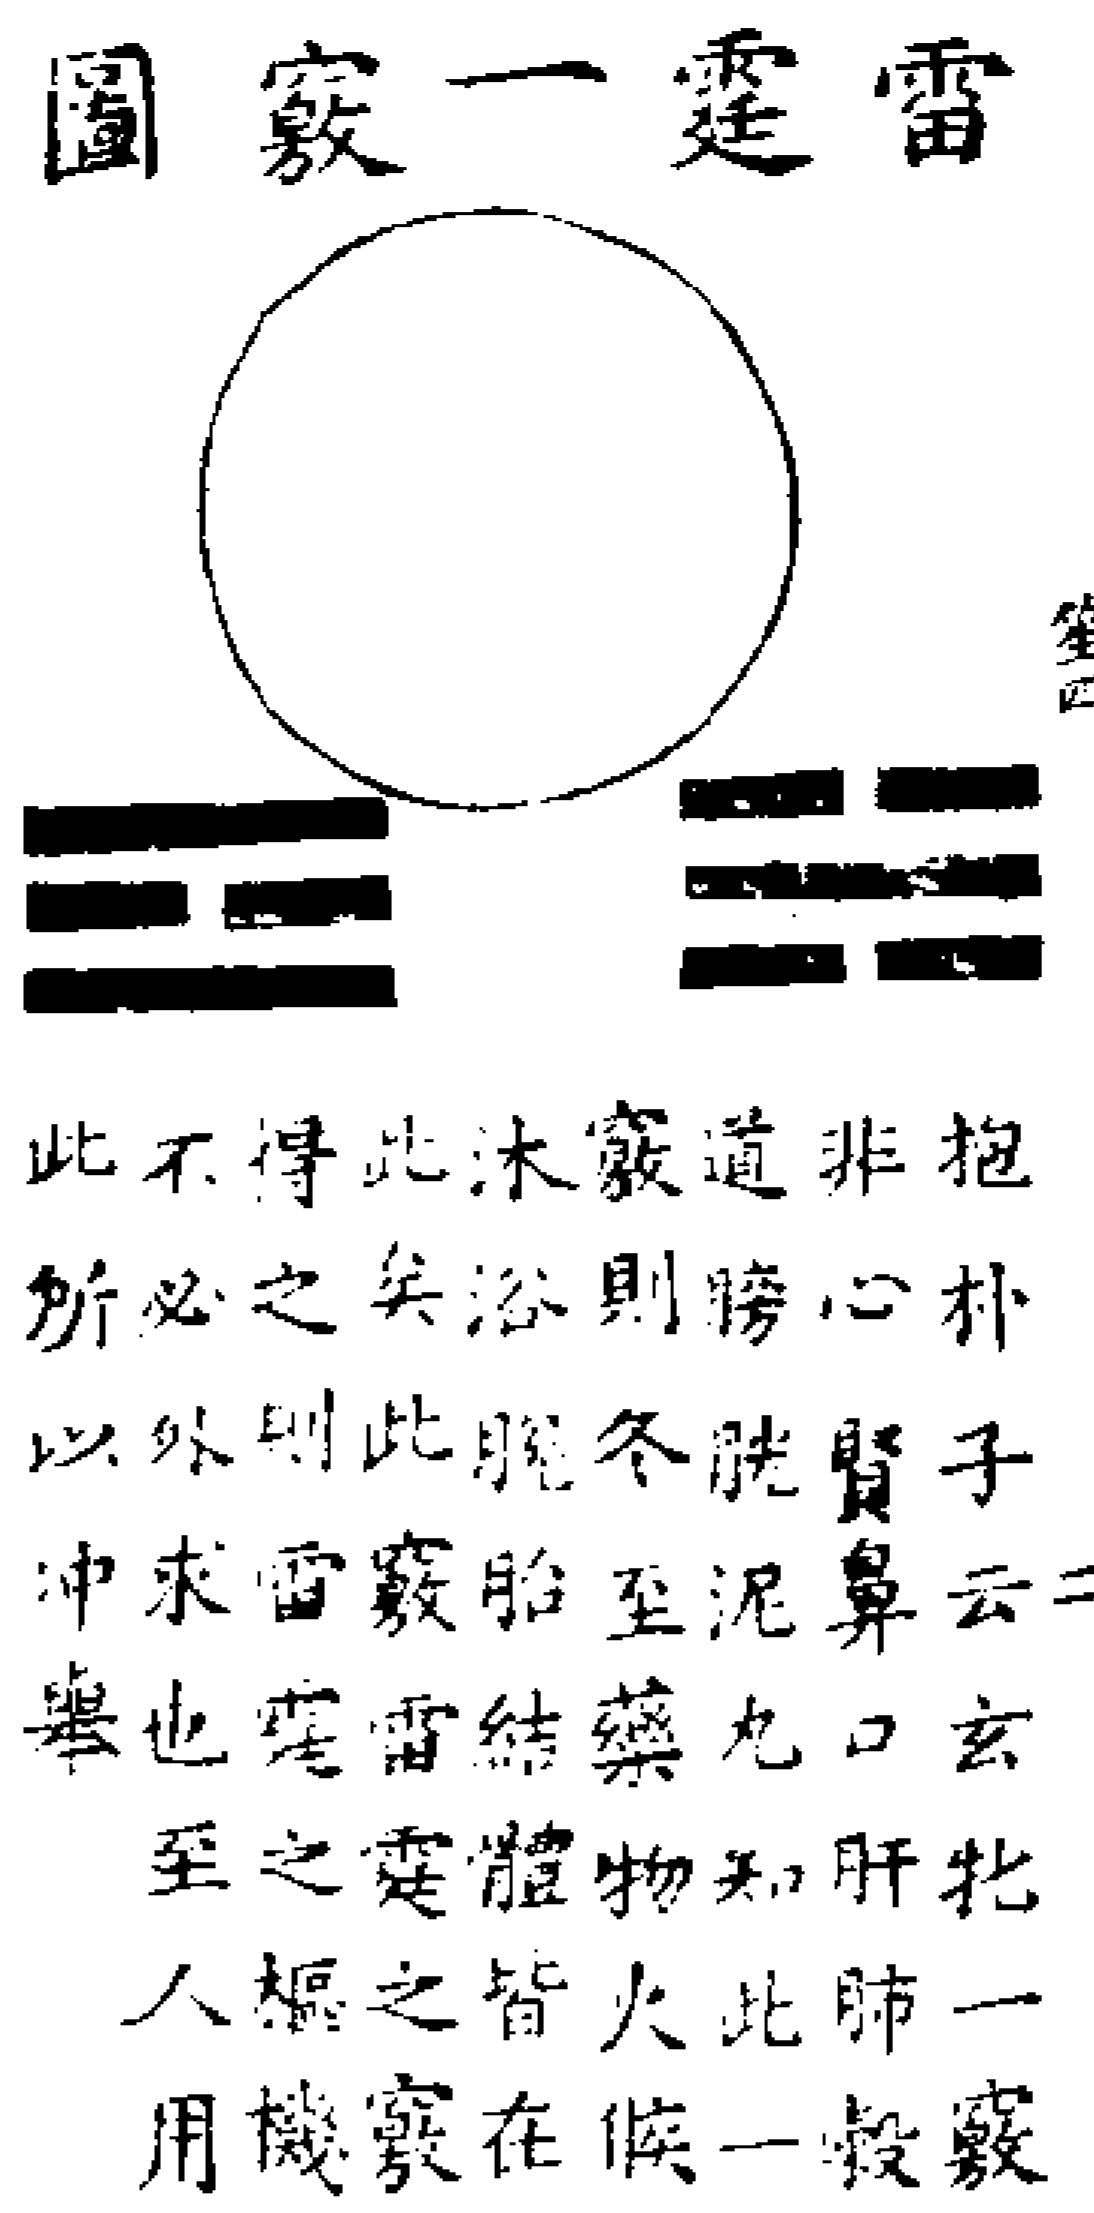 雷霆一竅圖
抱朴子云玄牝一竅
非心賢鼻口肝肺穀
道膀胱泥丸知此一
竅則冬至藥物火候
沐浴脫胎結體皆在
此矣此竅雷霆之竅
得之則雷霆之樞機
不必外求也至人用
此所以冲舉